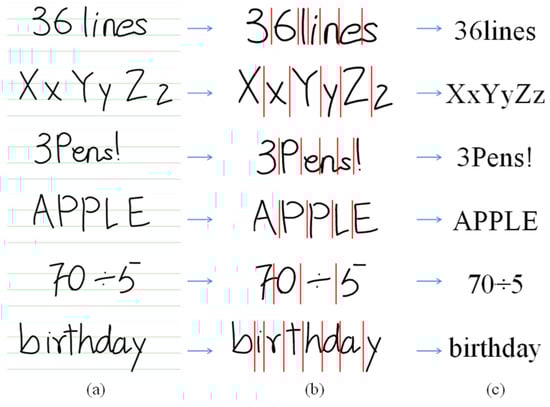 36 lines 36lines 36lines
XxYyZz XxYyZz XxYyZz
3Pens! 3Pens! 3Pens!
APPLE APPLE APPLE
70÷5 70÷5 70÷5
birthday birthday birthday
(a) (b) (c)